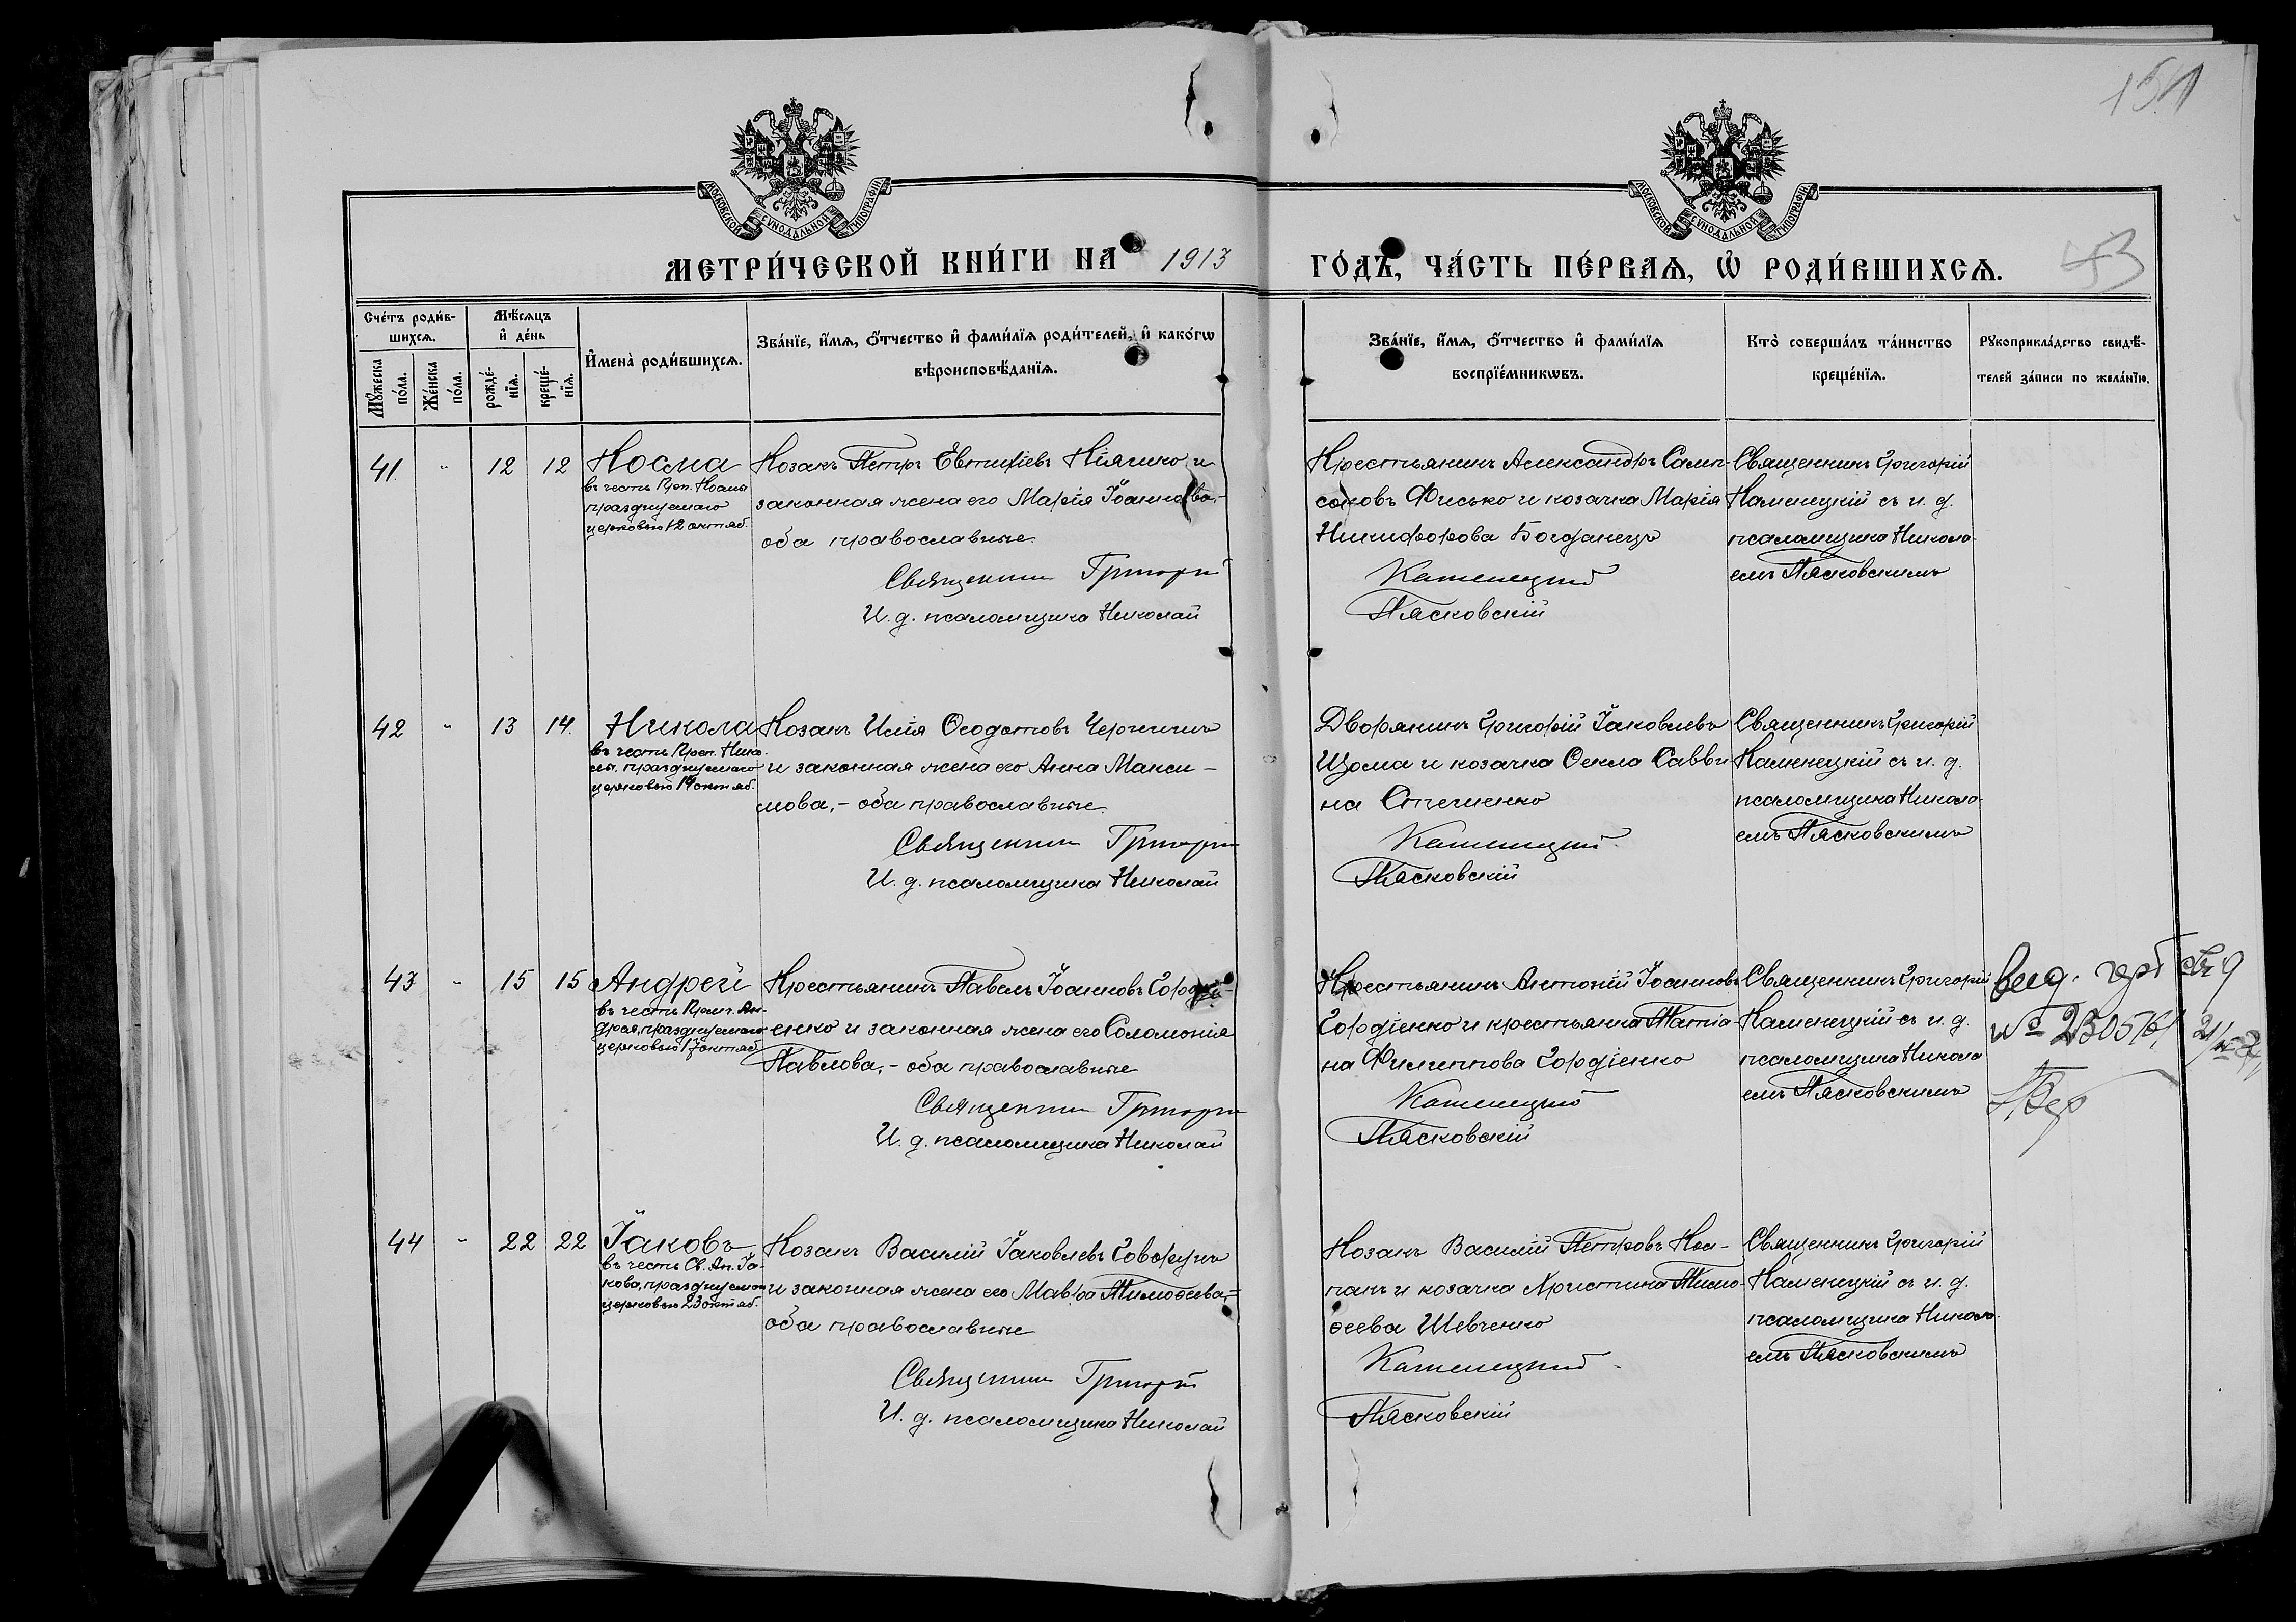 154
МОСКОВСКОЙ СѴНОДАЛЬНОЙ ТИПОГРАФІИ
МОСКОВСКОЙ СѴНОДАЛЬНОЙ ТИПОГРАФІИ
МЕТРИ́ЧЕСКОЙ КНИ́ГИ НА 1913 ГО́ДЪ, ЧА́СТЬ ПЕ́РВАѦ, Ѡ РОДИ́ВШИХСѦ.
53
Сче́тъ роди́в-
шихсѧ.
Мꙋ́жеска по́ла.
Же́нска по́ла.
Мѣ́сѧцъ
и҆ де́нь
рожде́-
нїѧ.
креще́-
нїѧ.
И҆мена̀ роди́вшихсѧ.
Зва́нїе, и҆́мѧ, ѻ҆́тчество и҆ фами́лїѧ роди́телей, и҆ како́гѡ
вѣроисповѣ́данїѧ.
Зва́нїе, и҆́мѧ, ѻ҆́тчество и҆ фами́лїѧ
воспрїе́мникѡвъ.
Кто̀ соверша́лъ та́инство
креще́нїѧ.
Рꙋкоприкла́дство свидѣ́-
телей за́писи по жела́нїю.
41 " 12 12 Косма
въ честь Преп. Космы
празднуемаго
церковью 12 октяб.
Козакъ Петръ Евтихіевъ и
законная жена его Марія Іоаннова,-
оба православные.
Священник Григорій
И. д. псаломщика Николай
Крестьянинъ Александръ Самп-
соновъ Фисько и козачка Марія
Никифорова Богданецъ
Каменецкій
Пясковскій
Священникъ Григорій
Каменецкій съ и. д.
псаломщика Никола-
емъ Пясковскимъ
42 " 13 14. Никола
въ честь Преп. Нико-
лы, празднуемаго
церковью 14 октяб.
Козакъ Илія Ѳеодотовъ
и законная жена его Анна Макси-
мова,- оба православные.
Священник Григорій
И. д. псаломщика Николай
Дворянинъ Григорій Іаковлевъ
Щома и козачка Ѳекла Савви-
на Степченко
Каменецкій.
Пясковскій
Священникъ Григорій
Каменецкій съ и. д.
псаломщика Никола-
емъ Пясковскимъ
43 " 15 15 Андрей
въ честь Препм. Ан-
дрея, празднуемаго
церковью 17 октяб.
Крестьянинъ Павелъ Іоанновъ Горді-
енко и законная жена его Соломонія
Павлова,- оба православные
Священник Григорій
И. д. псаломщика Николай
Крестьянинъ Антоній Іоанновъ
Гордіенко и крестьянка Татіа-
на Филиппова Гордіенко
Каменецкій
Пясковскій
Священникъ Григорій
Каменецкій съ и. д.
псаломщика Никола
емъ Пясковскимъ
вид.
№
44 " 22 22 Іаковъ
въ честь Св. Ап. Іа-
кова, празднуемаго
церковью 23 октяб.
Козакъ Василій Іаковлевъ Говорунъ
и законная жена его Мавра Тимоѳеева,-
оба православные
Священник Григорій
И. д. псаломщика Николай
Козакъ Василій Петровъ Кос-
панъ и козачка Христина Тимо-
ѳеева Шевченко
Каменецкій.
Пясковскій
Священникъ Григорій
Каменецкій съ и. д.
псаломщика Никола-
емъ Пясковскимъ